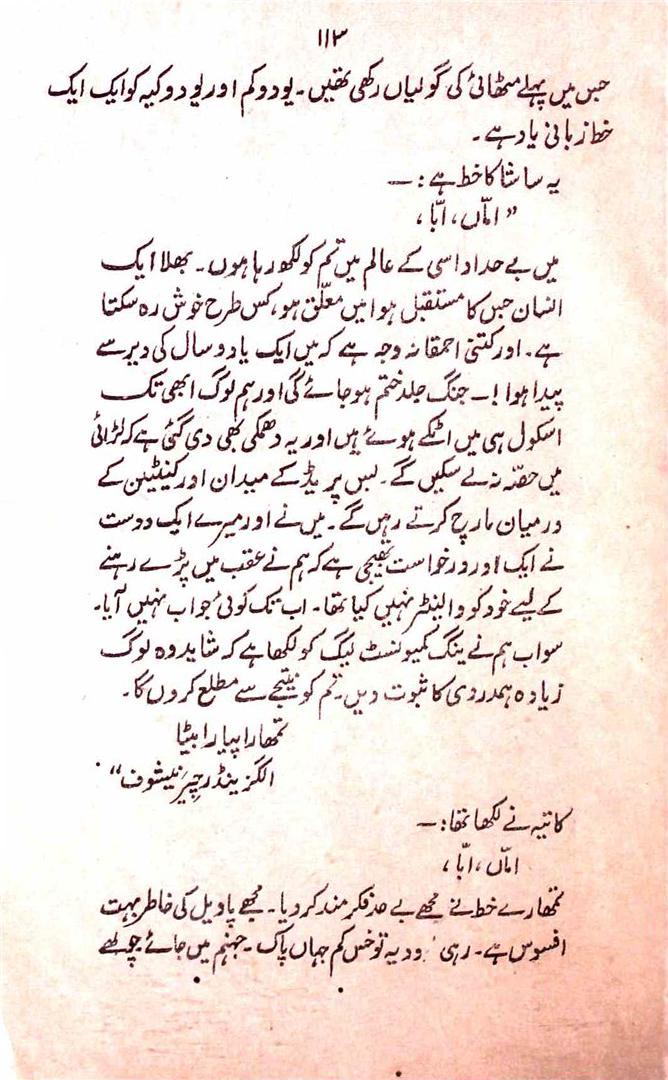 ۱۱۳
جس میں پہلے مٹھائی کی گولیاں رکھی تھیں۔ یودوکم اور یودوکیہ کو ایک ایک
خط زبانی یاد ہے۔
یہ ساشا کا خط ہے :—
” اماں، ابّا،
میں بے حد اداسی کے عالم میں تم کو لکھ رہا ہوں۔ بھلا ایک
انسان جس کا مستقبل ہوا میں معلّق ہو، کس طرح خوش رہ سکتا
ہے۔ اور کتنی احمقانہ وجہ ہے کہ میں ایک یا دو سال کی دیر سے
پیدا ہوا !۔ جنگ جلد ختم ہو جائے گی اور ہم لوگ ابھی تک
اسکول ہی میں اٹکے ہوئے ہیں اور یہ دھمکی بھی دی گئی ہے کہ لڑائی
میں حصّہ نہ لے سکیں گے۔ بس پریڈ کے میدان اور کینٹین کے
درمیان مارچ کرتے رہیں گے۔ میں نے اور میرے ایک دوست
نے ایک اور درخواست بھیجی ہے کہ ہم نے عقب میں پڑے رہنے
کے لیے خود کو والینٹر نہیں کیا تھا۔ اب تک کوئی جواب نہیں آیا۔
سو اب ہم نے ینگ کمیونسٹ لیگ کو لکھا ہے کہ شاید وہ لوگ
زیادہ ہمدردی کا ثبوت دیں۔ تم کو نتیجے سے مطلع کروں گا۔
تمھارا پیارا بیٹا
الگزینڈر چیرنیشوف“
کاتیہ نے لکھا تھا :—
اماں، ابّا،
تمھارے خط نے مجھے بے حد فکر مند کر دیا۔ مجھے پاویل کی خاطر بہت
افسوس ہے۔ رہی ودیہ تو خس کم جہاں پاک۔ جہنم میں جائے چولھے